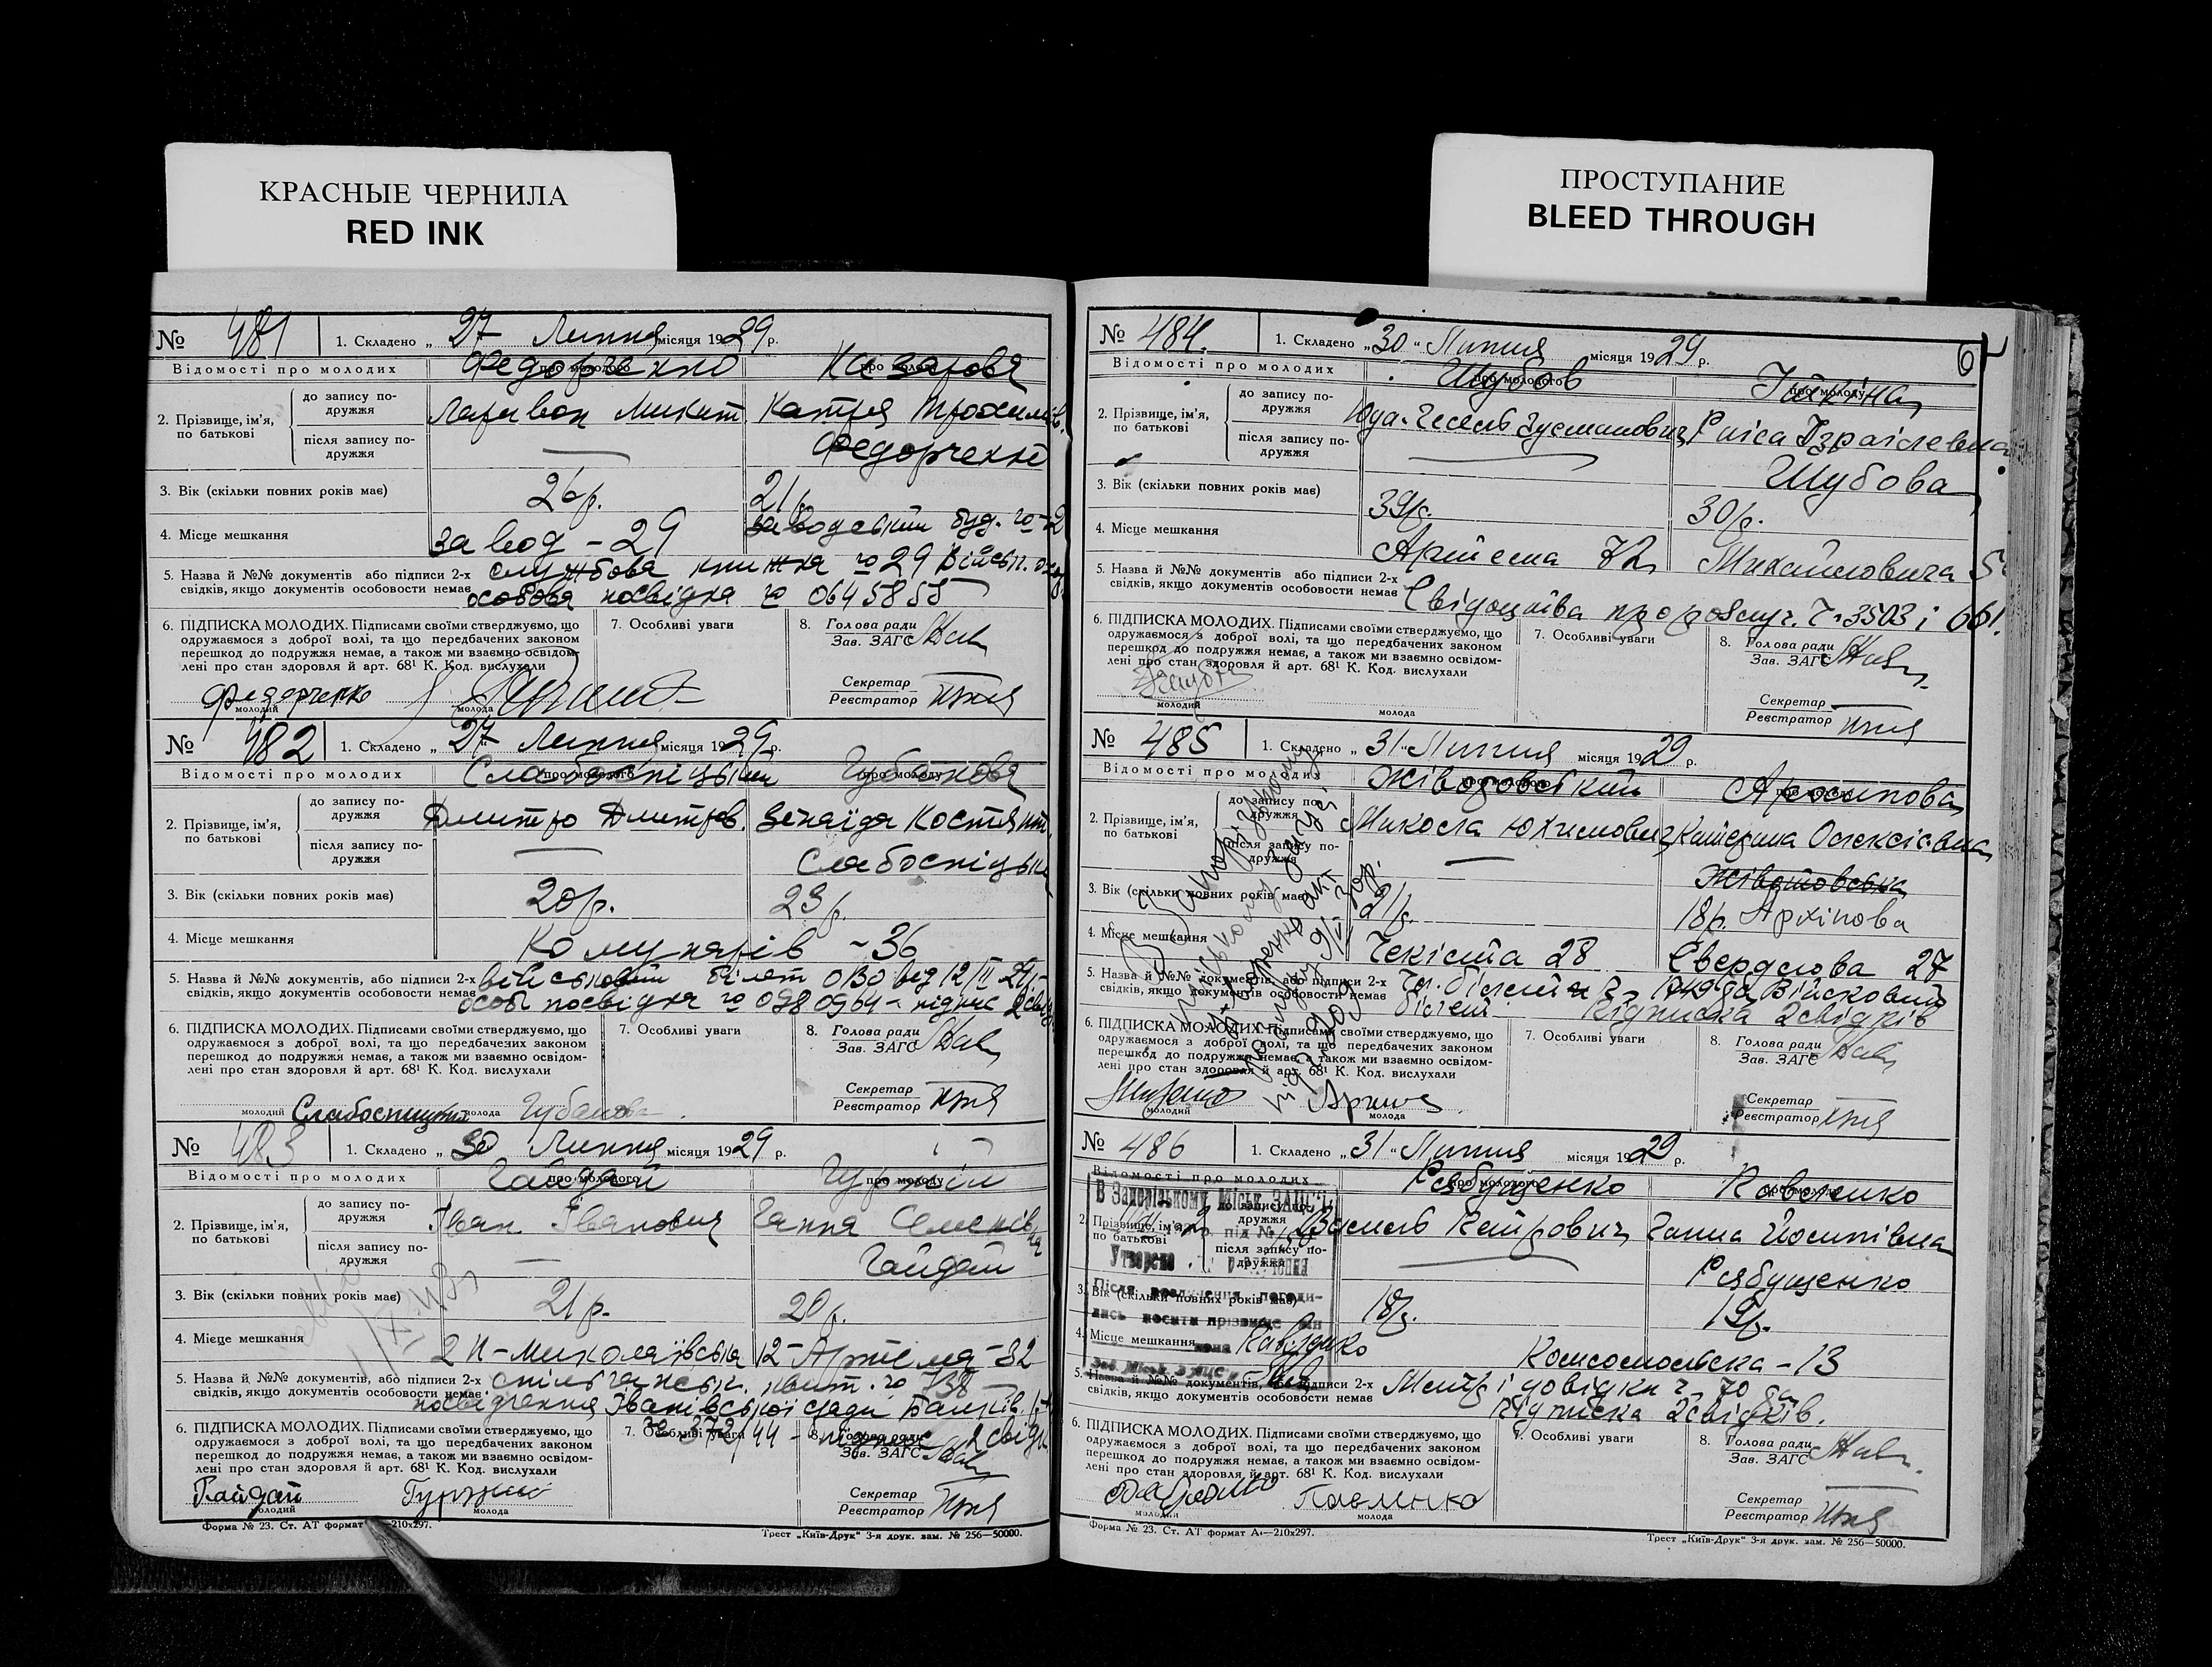 КРАСНЫЕ ЧЕРНИЛА
RED INK
ПРОСТУПАНИЕ
BLEED THROUGH
№ 481 1. Складено „ 27 Липня місяця 1929 р.
Відомості про молодих про молодого про молоду
Федорченко Казарова
2. Прізвище, ім'я, по батькові
до запису подружжя Микит. Катря
після запису подружжя — Федорченко
3. Вік (скільки повних років має) 26 р. 21 р.
4. Місце мешкання завод - 29 заводський буд. № - 2
5. Назва й №№ документів або підписи 2-х свідків, якщо документів особовости немає службова книжка № 29
особова посвідка № 0645855
6. ПІДПИСКА МОЛОДИХ. Підписами своїми стверджуємо, що
одружаємося з доброї волі, та що передбачених законом
перешкод до подружжя немає, а також ми взаємно освідом-
лені про стан здоровля й арт. 68¹ К. Код. вислухали
7. Особливі уваги
8. Голова ради
Зав. ЗАГС
Секретар
Реєстратор
Федорченко
молодий молода
№ 482 1. Складено „ 27 Липня місяця 1929 р.
Відомості про молодих про молодого про молоду
Слабоспіцький Губанова
2. Прізвище, ім'я, по батькові
до запису подружжя Дмитро Дмитров. Зенаїда Костянт.
після запису подружжя — Слабоспіцька
3. Вік (скільки повних років має) 20 р. 23 р.
4. Місце мешкання Комунарів - 36
5. Назва й №№ документів, або підписи 2-х свідків, якщо документів особовости немає військовий білет 030 від 12/II 29
особ посвідка № 0980964 - підпис 2 свід
6. ПІДПИСКА МОЛОДИХ. Підписами своїми стверджуємо, що
одружаємося з доброї волі, та що передбачених законом
перешкод до подружжя немає, а також ми взаємно освідом-
лені про стан здоровля й арт. 68¹ К. Код. вислухали
7. Особливі уваги
8. Голова ради
Зав. ЗАГС
Секретар
Реєстратор
молодий Слабоспицкий молода Губанова
№ 483 1. Складено „ 30 Липня місяця 1929 р.
Відомості про молодих про молодого про молоду
Гайдай Гуржій
2. Прізвище, ім'я, по батькові
до запису подружжя Іван Іванович Ганна Семенівна
після запису подружжя — Гайдай
3. Вік (скільки повних років має) 21 р. 20 р.
4. Місце мешкання 2 Н-Миколаївська 12 - Артема - 32
5. Назва й №№ документів, або підписи 2-х свідків, якщо документів особовости немає квит. № 738
посвідчення Іванівської ради
6. ПІДПИСКА МОЛОДИХ. Підписами своїми стверджуємо, що
одружаємося з доброї волі, та що передбачених законом
перешкод до подружжя немає, а також ми взаємно освідом-
лені про стан здоровля й арт. 68¹ К. Код. вислухали
7. Особливі уваги
8. Голова ради
Зав. ЗАГС
Секретар
Реєстратор
Гайдай
молодий молода
Форма № 23. Ст. АТ формат —210х297. Трест „Київ-Друк" 3-я друк. зам. № 256—50000.
№ 484. 1. Складено „ 30 " Липня місяця 1929 р.
Відомості про молодих про молодого про молоду
Шубов
2. Прізвище, ім'я, по батькові
до запису подружжя Юда-Гесель Зусманович Раїса Ізраілевна
після запису подружжя — Шубова
3. Вік (скільки повних років має) 39 р. 30 р.
4. Місце мешкання Артема 72 Михайловича 5
5. Назва й №№ документів або підписи 2-х свідків, якщо документів особовости немає Свідоцтва про розлуч. Ч. 3503 і 661.
6. ПІДПИСКА МОЛОДИХ. Підписами своїми стверджуємо, що
одружаємося з доброї волі, та що передбачених законом
перешкод до подружжя немає, а також ми взаємно освідом-
лені про стан здоровля й арт. 68¹ К. Код. вислухали
7. Особливі уваги
8. Голова ради
Зав. ЗАГС
Секретар
Реєстратор
молодий молода
№ 485 1. Складено „ 31 " Липня місяця 1929 р.
Відомості про молодих про молодого про молоду
Жівотовський Архипова
2. Прізвище, ім'я, по батькові
до запису подружжя Микола Юхимович Катерина Олексієвна
після запису подружжя — Жівотовська
3. Вік (скільки повних років має) 21 р. 18 р. Архіпова
4. Місце мешкання Чекіста 28 Свердлова 27
5. Назва й №№ документів, або підписи 2-х свідків, якщо документів особовости немає Військовий
білет. Підписка 2 свідків
6. ПІДПИСКА МОЛОДИХ. Підписами своїми стверджуємо, що
одружаємося з доброї волі, та що передбачених законом
перешкод до подружжя немає, а також ми взаємно освідом-
лені про стан здоровля й арт. 68¹ К. Код. вислухали
7. Особливі уваги
8. Голова ради
Зав. ЗАГС
Секретар
Реєстратор
молодий молода
№ 486 1. Складено „ 31 " Липня місяця 1929 р.
Відомості про молодих про молодого про молоду
Рябущенко Павленко
В Запорізькому Міськ. ЗАГС'і
2. Прізвище, ім'я, по батькові
до запису подружжя Василь Петрович Ганна Йосипівна
після запису подружжя — Рябущенко
3. Вік (скільки повних років має) 18 р. 19 р.
Після розлучення погоди-
лись носити прізвище він
вона Павленко
4. Місце мешкання Комсомольска - 13
5. Назва й №№ документів, або підписи 2-х свідків, якщо документів особовости немає Метр. і довідки ч. 70
Підписка 2 свідків.
6. ПІДПИСКА МОЛОДИХ. Підписами своїми стверджуємо, що
одружаємося з доброї волі, та що передбачених законом
перешкод до подружжя немає, а також ми взаємно освідом-
лені про стан здоровля й арт. 68¹ К. Код. вислухали
7. Особливі уваги
8. Голова ради
Зав. ЗАГС
Секретар
Реєстратор
Павленко
молодий молода
Форма № 23. Ст. АТ формат А—210х297. Трест „Київ-Друк" 3-я друк. зам. № 256—50000.